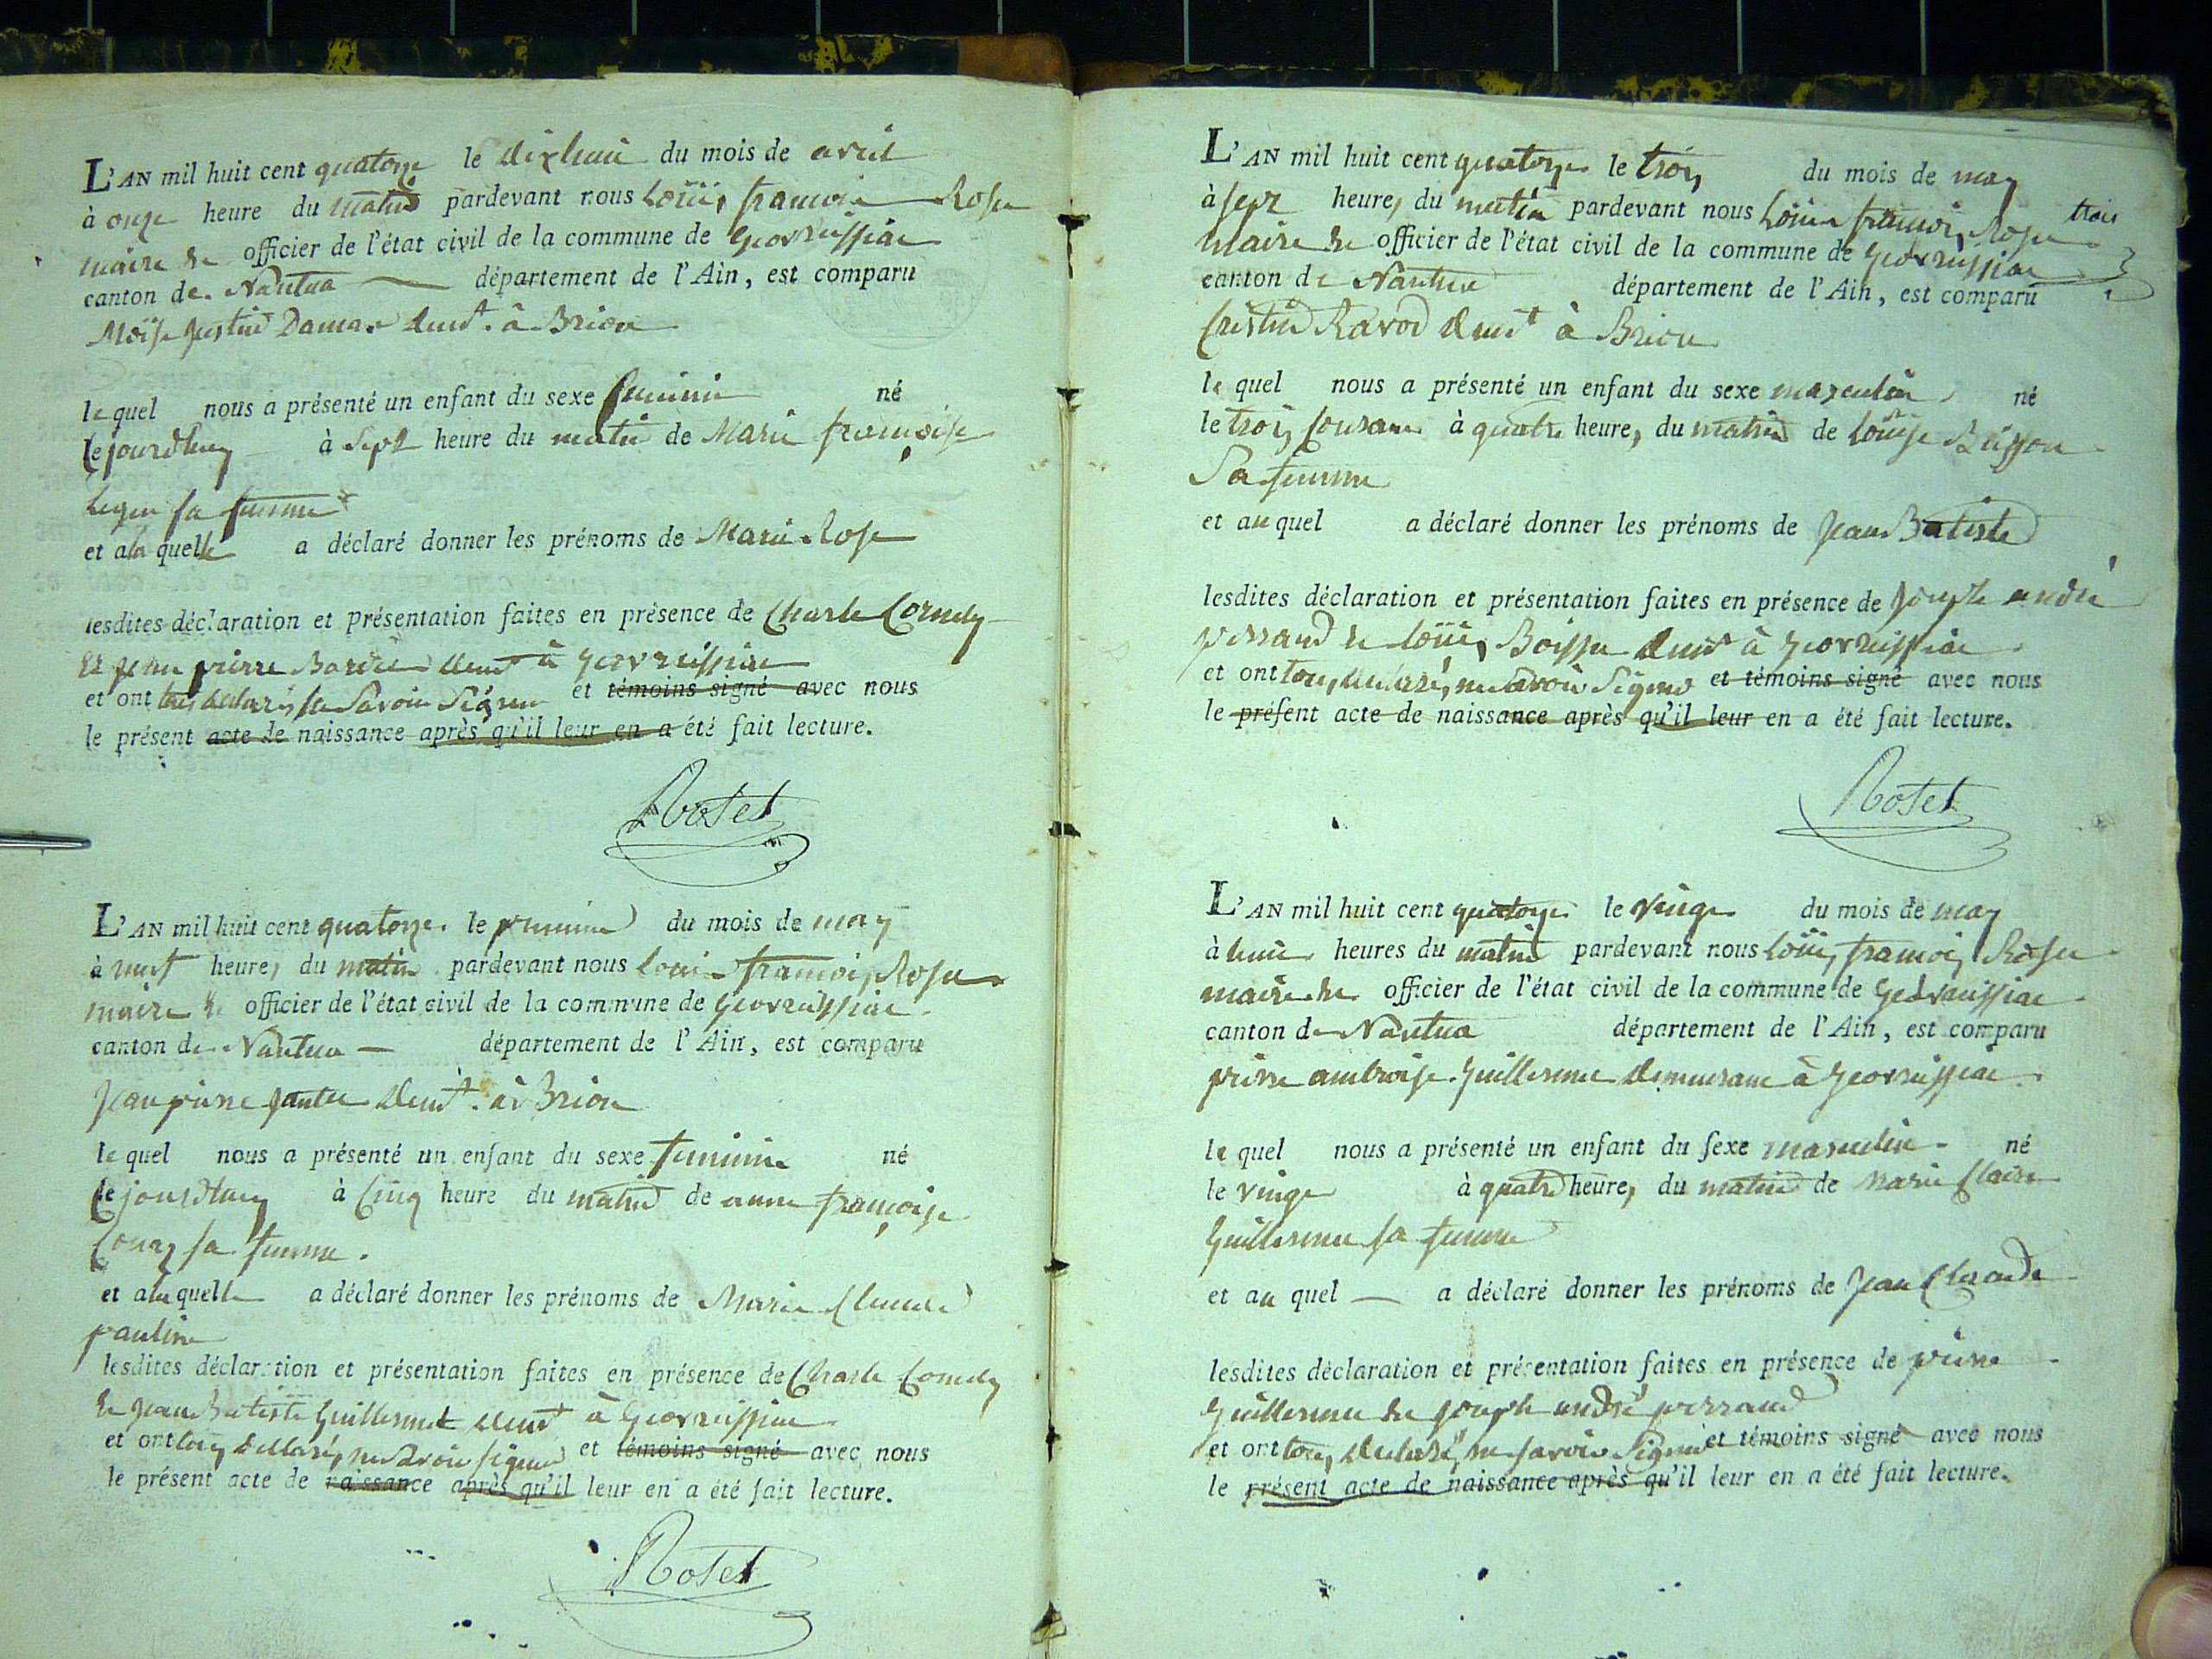 L'AN mil huit cent quatorze le dixhuit du mois de avril
à onze heure du matin pardevant nous Louis françois Roset
maire et officier de l'état civil de la commune de Geovreissiat
canton de Nantua département de l'Ain, est comparu
Moïse Justin Damas demt. à Brion
lequel nous a présenté un enfant du sexe feminin né
cejourdhuy à Sept heure du matin de Marie françoise
sa femme
et a la quelle a déclaré donner les prénoms de Marie Rose
lesdites déclaration et présentation faites en présence de Charle Cornely
et Jean pierre demt à Geovreissiat
et ont tous declarés ne Savoir Signer et témoins signé avec nous
le présent acte de naissance après qu'il leur en a été fait lecture.
Roset
L'AN mil huit cent quatorze le premier du mois de may
à neuf heures du matin pardevant nous Louis françois Roset
maire et officier de l'état civil de la commune de Geovreissiat
canton de Nantua département de l'Ain, est comparu
Jean pierre demt. à Brion
lequel nous a présenté un enfant du sexe feminin né
cejourdhuy à Cinq heure du matin de anne françoise
sa femme.
et a la quelle a déclaré donner les prénoms de Marie Claude
pauline
lesdites déclaration et présentation faites en présence de Charle Cornely
et Jean Batiste Guillermet demt à Geovreissiat
et ont tous declarés ne Savoir signer et témoins signé avec nous
le présent acte de naissance après qu'il leur en a été fait lecture.
Roset
L'AN mil huit cent quatorze le trois du mois de may
à sept heures du matin pardevant nous Louis françois Roset trois
maire et officier de l'état civil de la commune de Geovreissiat
canton de Nantua département de l'Ain, est comparu
Cristin Ravod demt à Brion
lequel nous a présenté un enfant du sexe masculin né
le trois Courant à quatre heures du matin de Louise Buisson
Sa femme
et au quel a déclaré donner les prénoms de Jean Batiste
lesdites déclaration et présentation faites en présence de Joseph andré
perraud et Louis demt à Geovreissiat
et ont tous declarés ne Savoir Signer et témoins signé avec nous
le présent acte de naissance après qu'il leur en a été fait lecture.
Roset
L'AN mil huit cent quatorze le vingt du mois de may
à huit heures du matin pardevant nous Louis françois Roset
maire et officier de l'état civil de la commune de Geovreissiat
canton de Nantua département de l'Ain, est comparu
pierre ambroise Guillermet demeurant à Geovreissiat
lequel nous a présenté un enfant du sexe masculin né
le vingt à quatre heures du matin de Marie Claire
Guillermet sa femme
et au quel a déclaré donner les prénoms de Jean Claude
lesdites déclaration et présentation faites en présence de pierre
Guillermet et Joseph andré perraud
et ont tous declarés ne savoir Signer et témoins signé avec nous
le présent acte de naissance après qu'il leur en a été fait lecture.